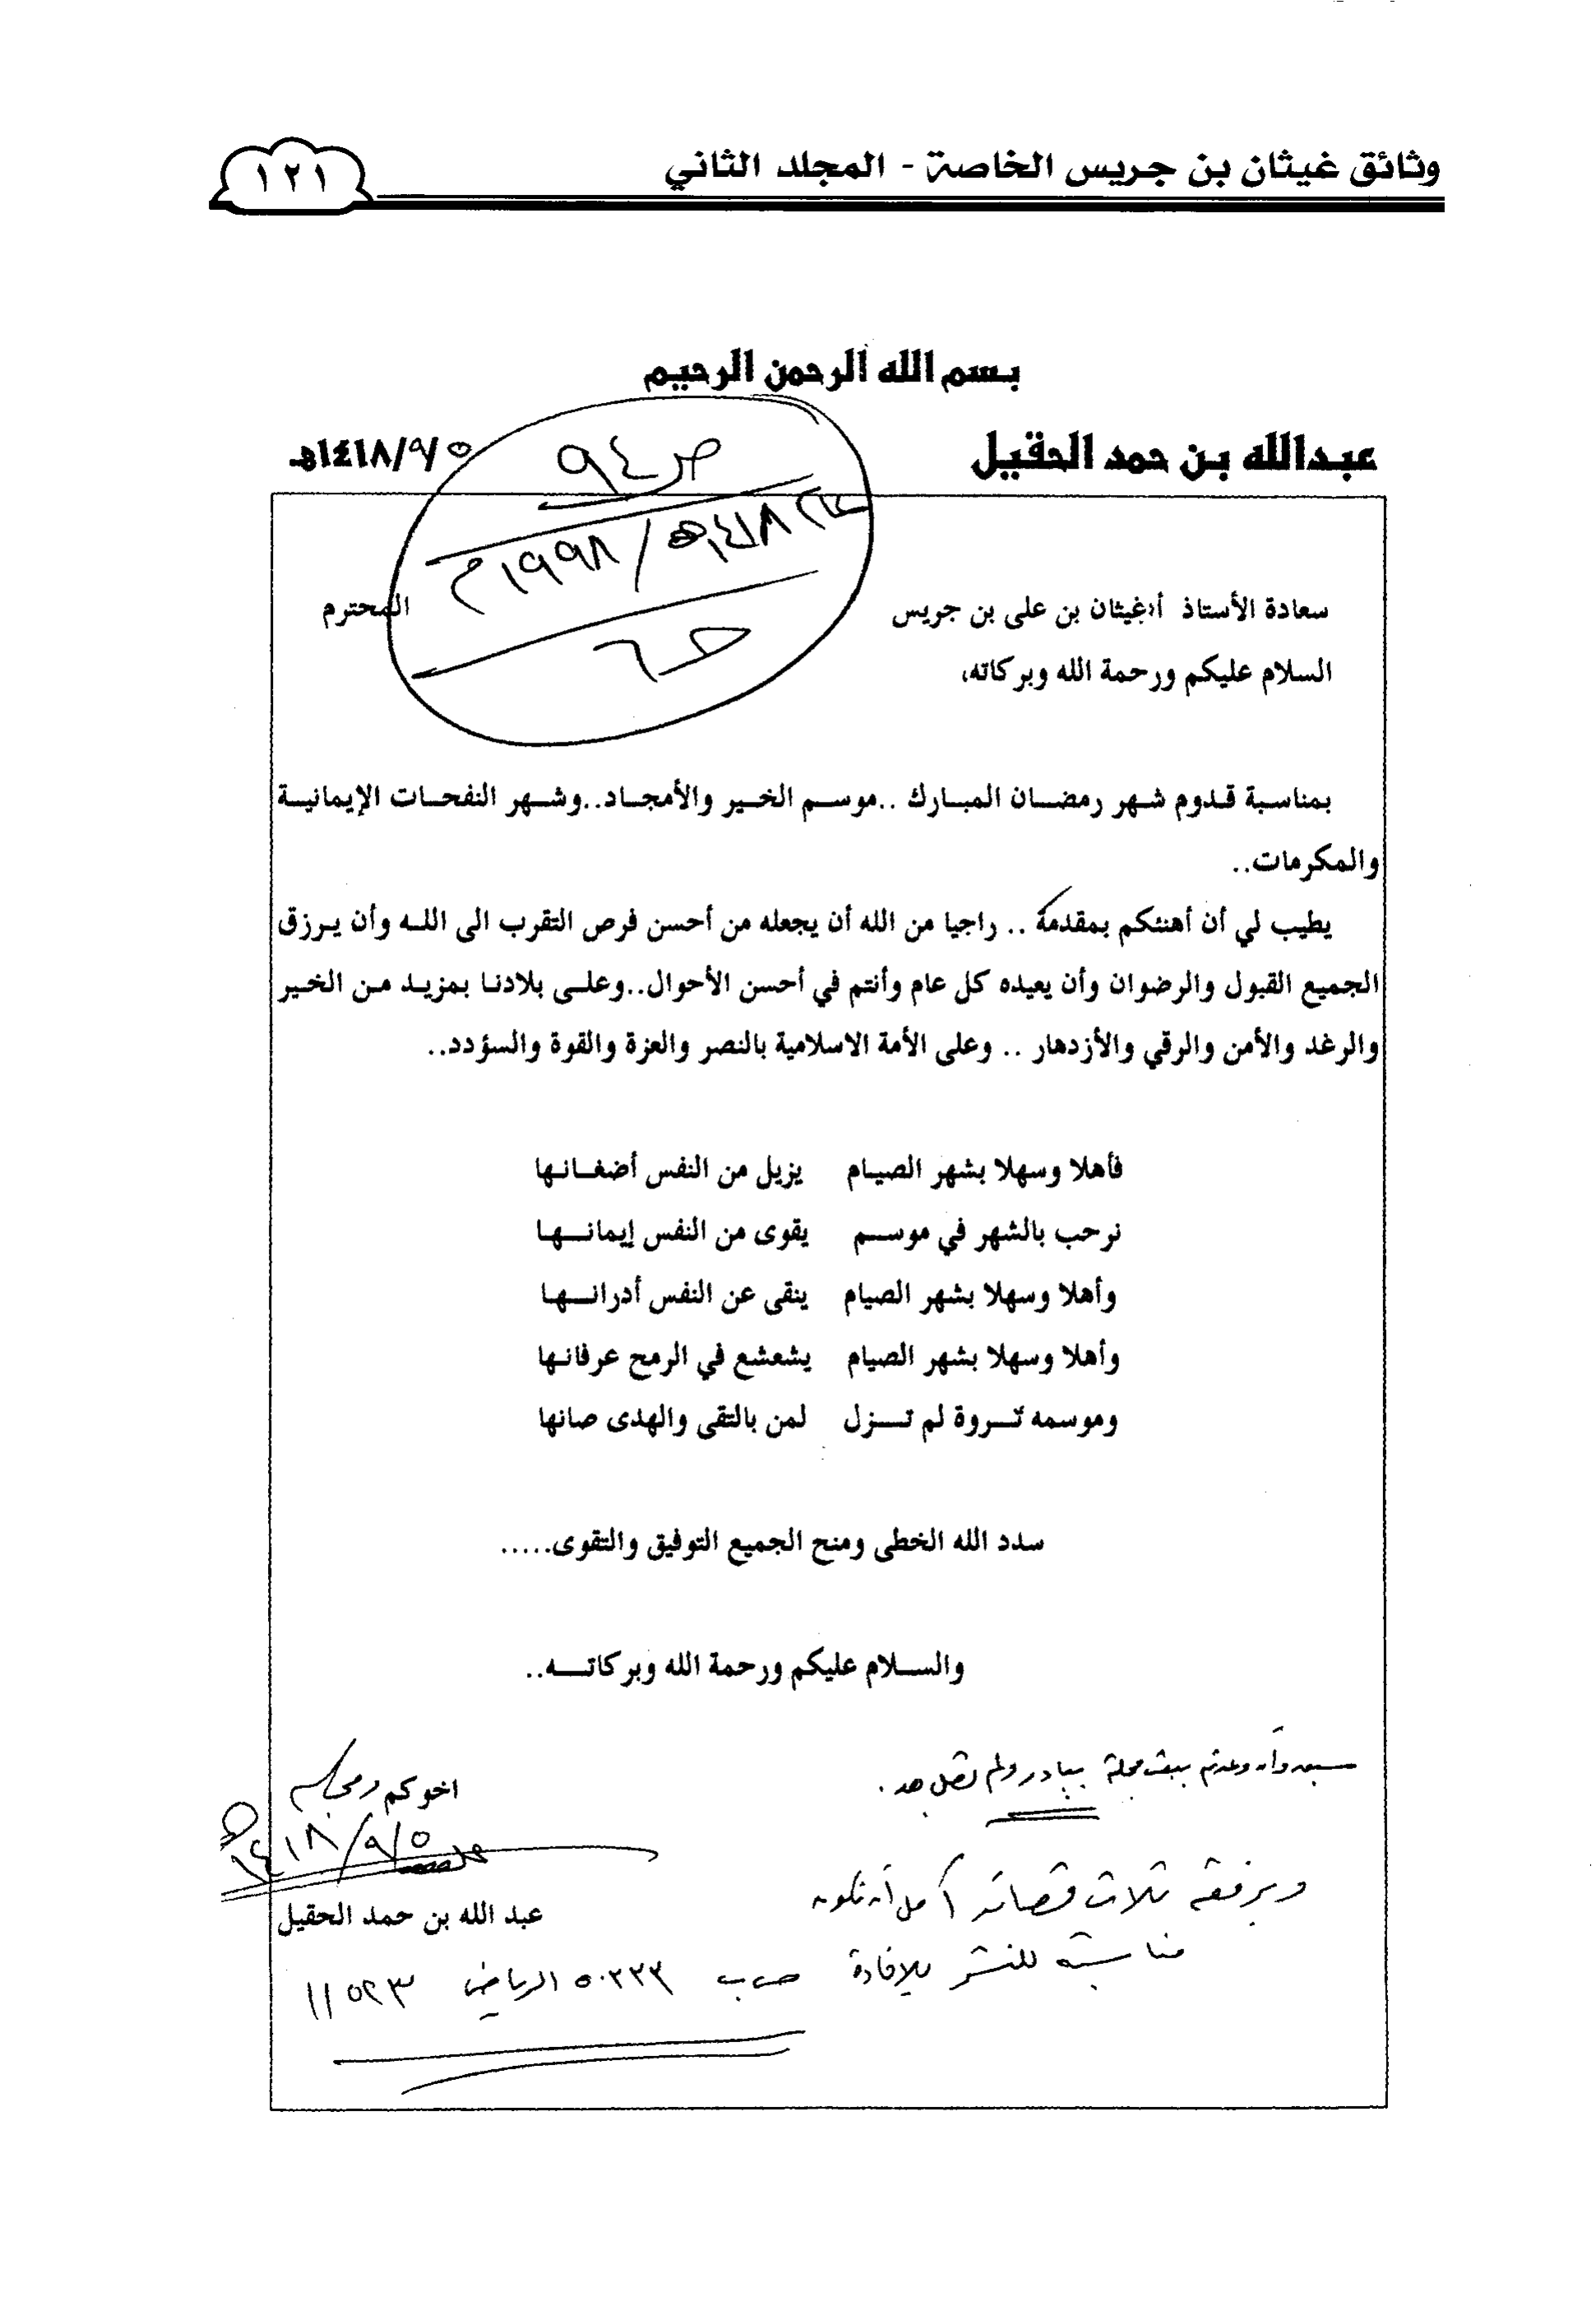 وثائق غيثان بن جريس الخاصة - المجلد الثاني
١٢١
بسم الله الرحمن الرحيم
عبدالله بن حمد الحقيل
١٤١٨/٩/٥هـ
ص ٩٤
١٤١٨هـ / ١٩٩٨م
سعادة الأستاذ أ.د غيثان بن على بن جريس المحترم
السلام عليكم ورحمة الله وبركاته،
بمناسبة قدوم شهر رمضان المبارك ..موسم الخير والأمجاد..وشهر النفحات الإيمانية
والمكرمات..
يطيب لي أن أهنئكم بمقدمة .. راجيا من الله أن يجعله من أحسن فرص التقرب الى الله وأن يرزق
الجميع القبول والرضوان وأن يعيده كل عام وأنتم في أحسن الأحوال..وعلى بلادنا بمزيد من الخير
والرغد والأمن والرقي والأزدهار .. وعلى الأمة الاسلامية بالنصر والعزة والقوة والسؤدد..
فأهلا وسهلا بشهر الصيام يزيل من النفس أضغانها
نرحب بالشهر في موسم يقوى من النفس إيمانها
وأهلا وسهلا بشهر الصيام ينقى عن النفس أدرانها
وأهلا وسهلا بشهر الصيام يشعشع في الرمح عرفانها
وموسمه ثروة لم تزل لمن بالتقى والهدى صانها
سدد الله الخطى ومنح الجميع التوفيق والتقوى.....
والسلام عليكم ورحمة الله وبركاته..
سبق وأن وعدتم ببعث مجلة بيادر ولم تصل بعد .
اخوكم ومحبكم
١٤١٨/٩/٥هـ
عبد الله بن حمد الحقيل
وبرفقه ثلاث قصائد آمل أن تكون
مناسبة للنشر للإفادة ص ب ٥٠٢٣٣ الرياض ١١٥٢٣